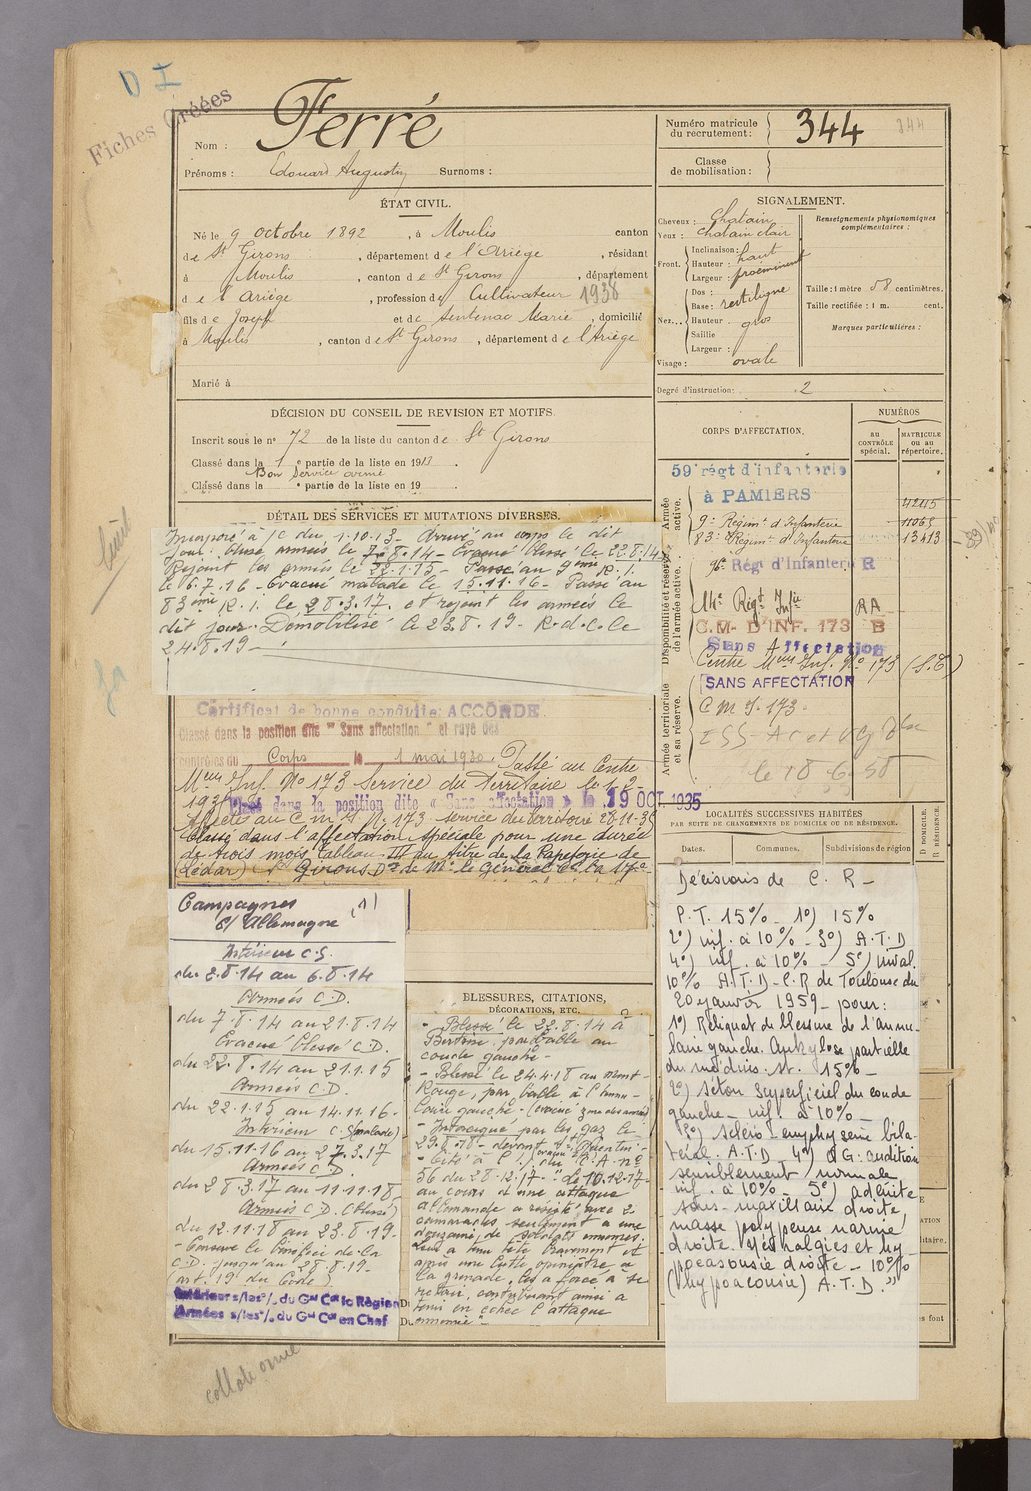 D I
Fiches Créées
Nom : Ferré
Prénoms : Edouard Augustin Surnoms :
Numéro matricule du recrutement : 344 344
Classe de mobilisation :
ÉTAT CIVIL.
Né le 9 octobre 1892, à Moulis canton
de St Girons, département de l'Ariège, résidant
à Moulis, canton de St Girons, département
de l'Ariège, profession de Cultivateur 1938
fils de Joseph et de Sentenac Marie, domicilié
à Moulis, canton de St Girons, département de l'Ariège
Marié à
SIGNALEMENT.
Cheveux : Chatain
Yeux : Chatain clair
Front. Inclinaison : haut
Hauteur : proeminent
Largeur :
Nez... Dos :
Base : rectiligne
Hauteur gros
Saillie
Largeur :
Visage : ovale
Renseignements physionomiques complémentaires :
Taille : 1 mètre 58 centimètres.
Taille rectifiée : 1 m. cent.
Marques particulières :
Degré d'instruction : 2
DÉCISION DU CONSEIL DE REVISION ET MOTIFS.
Inscrit sous le n° 72 de la liste du canton de St Girons
Classé dans la 1e partie de la liste en 1913.
Bon Service armé
Classé dans la e partie de la liste en 19
CORPS D'AFFECTATION.
NUMÉROS
AU CONTRÔLE spécial.
MATRICULE OU AU répertoire.
Armée active.
59e régt d'infanterie
à PAMIERS 42115
9e Régimt d'Infanterie 11063
83e Régimt d'Infanterie 13413
Disponibilité et réserve de l'armée active.
96e Régt d'Infanterie R
14e Régt Infie RA
C.M. D'INF. 173 B
Sans Affectation
Centre Mm Inf. No 173 (S.T)
SANS AFFECTATION
Armée territoriale et sa réserve.
C M I. 173
le 18-6-58
DÉTAIL DES SERVICES ET MUTATIONS DIVERSES.
Incorporé à /c du 1.10.13- Arrivé au corps le dit
jour. Passé armées le 7.8.14- Evacué blessé le 22.8.14
Rejoint les armées le 22.1.15- Passé au 9ème R.I.
le 16.7.16- Evacué malade le 15.11.16- Passé au
83ème R.I. le 28.3.17. et rejoint les armées le
dit jour. Démobilisé le 23.8.19- R.d.c. le
24.8.19-
Certificat de bonne conduite : ACCORDÉ.
Classé dans la position dite "Sans affectation" et rayé des
contrôles du Corps le 1 mai 1930. Passé au Centre
Mm Inf. No 173 Service du Territoire le 1-2-
Classé dans la position dite « Sans affectation » le 19 OCT. 1935
Affecté au C m I No 173 service du territoire
Classé dans l'affectation spéciale pour une durée
de trois mois, tableau III au titre de la Papeterie de
Lédar) St Girons
LOCALITÉS SUCCESSIVES HABITÉES
PAR SUITE DE CHANGEMENTS DE DOMICILE OU DE RÉSIDENCE.
D DOMICILE. R RÉSIDENCE.
Dates. Communes. Subdivisions de région
Campagnes (1)
c/ Allemagne
Intérieur C.S.
du 2.8.14 au 6.8.14
Armées C.D.
du 7.8.14 au 21.8.14
Evacué blessé C.D.
du 22.8.14 au 21.1.15
Armées C.D.
du 22.1.15 au 14.11.16-
Intérieur C.S (malade)
du 15.11.16 au 27.3.17
Armées C.D.
du 28.3.17 au 11.11.18
Armées C.D. (blessé)
du 12.11.18 au 23.8.19-
- Conserve le bénéfice de la
C.D. jusqu'au 28.8.19-
(art. 19 du Code)
Intérieur s/les o/ du Gal Ct la Région
Armées s/les o/ du Gal Ct en Chef
BLESSURES, CITATIONS,
DÉCORATIONS, ETC.
- Blessé le 22.8.14 à
Bertrix, par balle au
coude gauche-
- Blessé le 24.4.18 au Mont-
Rouge, par balle à l'annu-
laire gauche-
- Intoxiqué par les gaz le
29.8.18- devant St Quentin
- Cité à l'o. du C.A. no
56 du 28.12.17- "Le 10.12.17-
au cours d'une attaque
allemande a résisté avec 2
camarades seulement à une
douzaine de soldats ennemis.
Leur a tenu tête bravement et
après une lutte opiniâtre à
la grenade, les a forcé à se
retirer, contribuant ainsi à
tenir en échec l'attaque
ennemie"-
Décisions de C. R-
P.T. 15%- 1°) 15%
2°) inf. à 10%- 3°) A.T.D
4°) inf. à 10%- 5°) inval.
10% A.T.D- C.R de Toulouse du
20 janvier 1959- pour :
1°) Reliquat de blessure de l'annu-
laire gauche. Ankylose partielle
du médius. st. 15%-
2°) Séton superficiel du coude
gauche- inf. à 10%-
3°) sclero-emphyseme bila-
téral. A.T.D 4°) OG : audition
sensiblement normale
inf. à 10%- 5°) adénite
sous-maxillaire droite,
masse polypeuse narine
droite. Névralgies et hy-
poacousie droite- 10%
(hypoacousie) A.T.D."
collationné